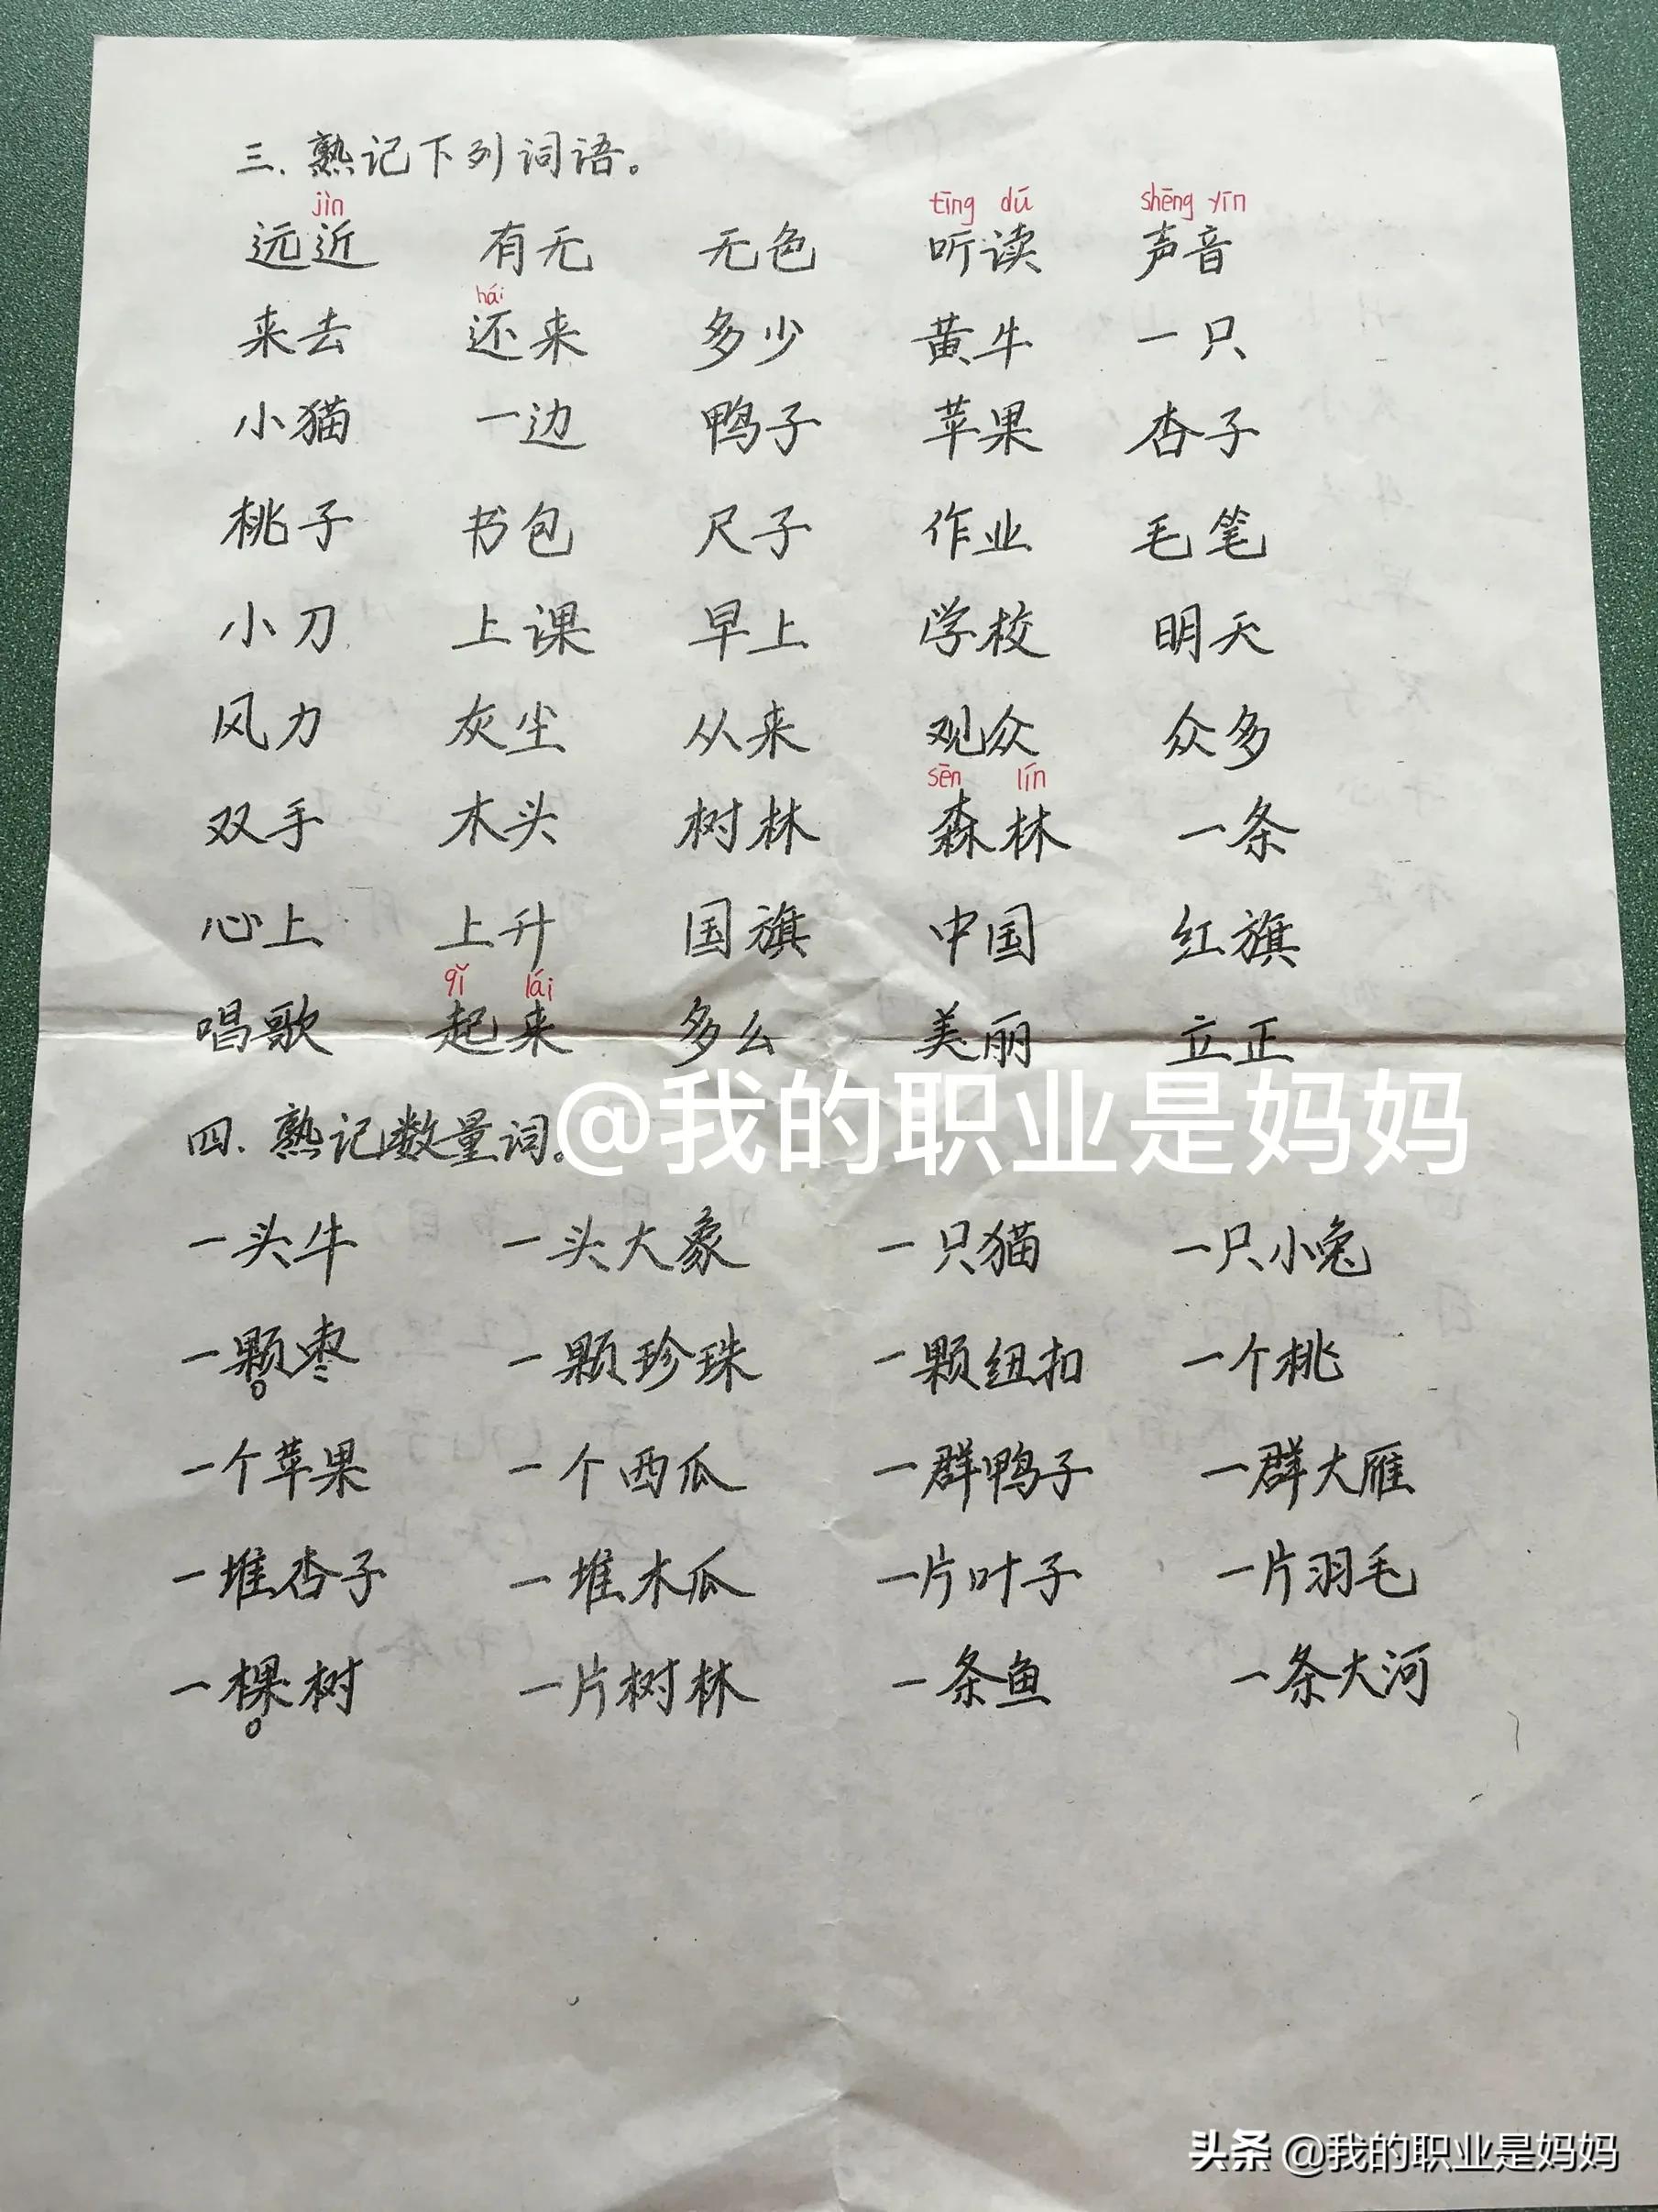 三.熟记下列词语。
jìn tīng dú shēng yīn
远近 有无 无色 听读 声音
hái
来去 还来 多少 黄牛 一只
小猫 一边 鸭子 苹果 杏子
桃子 书包 尺子 作业 毛笔
小刀 上课 早上 学校 明天
风力 灰尘 从来 观众 众多
sēn lín
双手 木头 树林 森林 一条
心上 上升 国旗 中国 红旗
qǐ lái
唱歌 起来 多么 美丽 立正
@我的职业是妈妈
四.熟记数量词。
一头牛 一头大象 一只猫 一只小兔
一颗枣 一颗珍珠 一颗纽扣 一个桃
一个苹果 一个西瓜 一群鸭子 一群大雁
一堆杏子 一堆木瓜 一片叶子 一片羽毛
一棵树 一片树林 一条鱼 一条大河
头条 @我的职业是妈妈